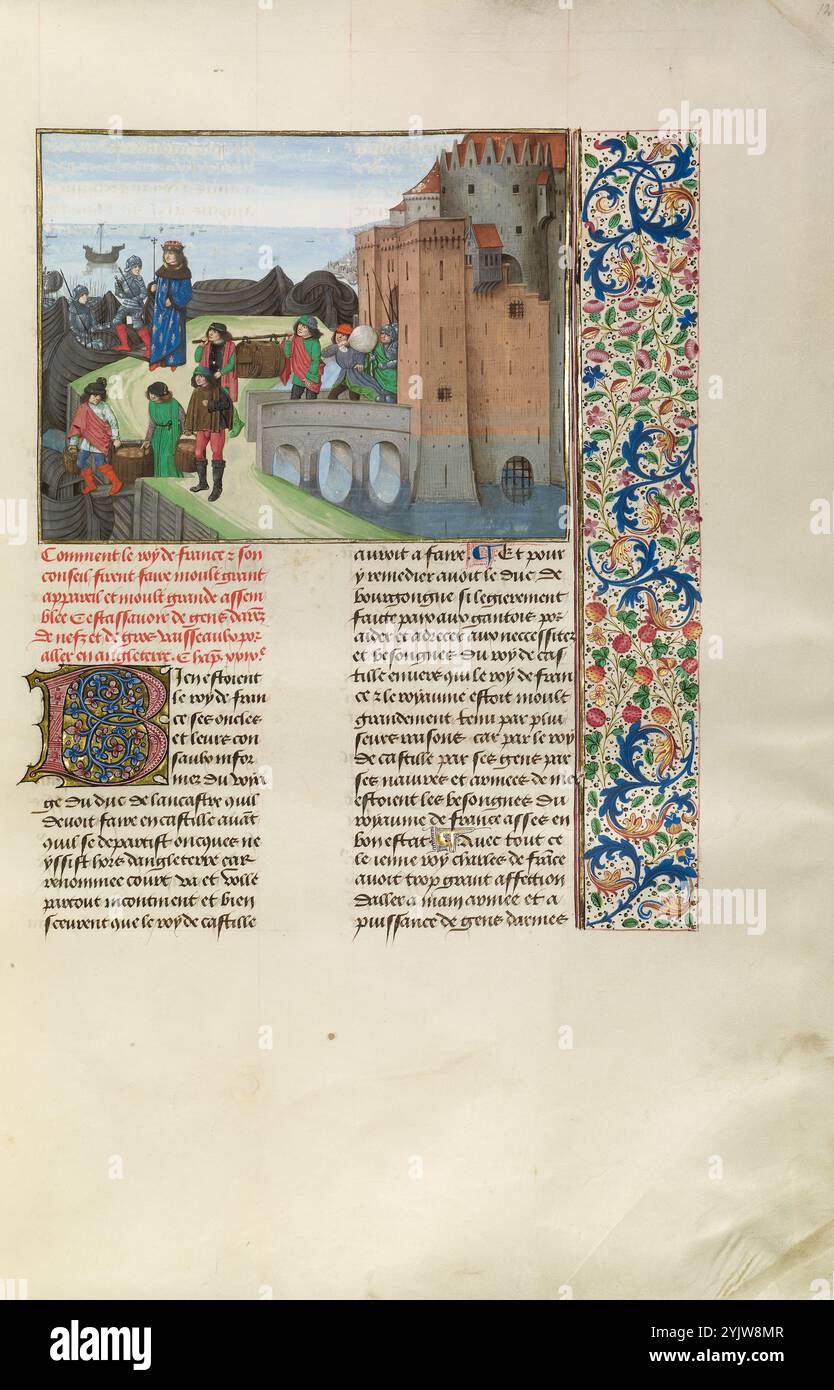 12
Comment le roy de france & son
conseil firent faire moult grant
appareil et moult grande assem
blee Cestassavoir de gens darmes
de nefz et de gros vaisseaulx por
aller en angleterre. Chap.
Bien estoient
le roy de fran
ce ses oncles
et leurs con
saulx infor
mez du voia
ge du duc de lancastre quil
devoit faire en castille avant
quil se departist oncques ne
yssist hors dangleterre car
renommee court va et volle
partout incontinent et bien
sceurent que le roy de castille
auroit a faire. Et pour
y remedier avoit le duc de
bourgongne si legierement
faitte paix aux gantois por
aider et adrecer aux necessitez
et besongnes du roy de cas
tille envers qui le roy de fran
ce & le royaume estoit moult
grandement tenu par plui
seurs raisons car par le roy
de castille par ses gens par
ses navires et armees de mer
estoient les besongnes du
royaume de france asses en
bon estat Avec tout ce
le ienne roy charles de france
avoit trop grant affection
daller a main armee et a
puissance de gens darmes
alamy
Image ID: 2YJW8MR
www.alamy.com